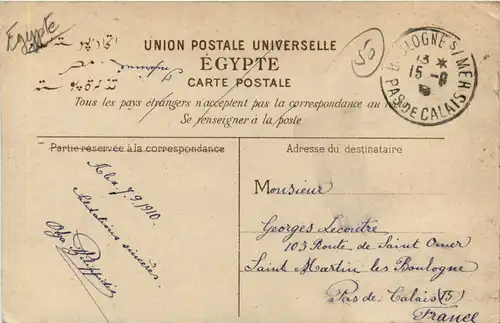 Egypte
UNION POSTALE UNIVERSELLE
ÉGYPTE
CARTE POSTALE
Tous les pays étrangers n'acceptent pas la correspondance au
Se renseigner à la poste
50
BOULOGNE S/MER
15-9
PAS DE CALAIS
Partie réservée à la correspondance
Adresse du destinataire
7.9.1910.
Salutations sincères.
Olga
Monsieur
Georges Lecoutre
103 Route de Saint Omer
Saint Martin les Boulogne
Pas de Calais (15)
France